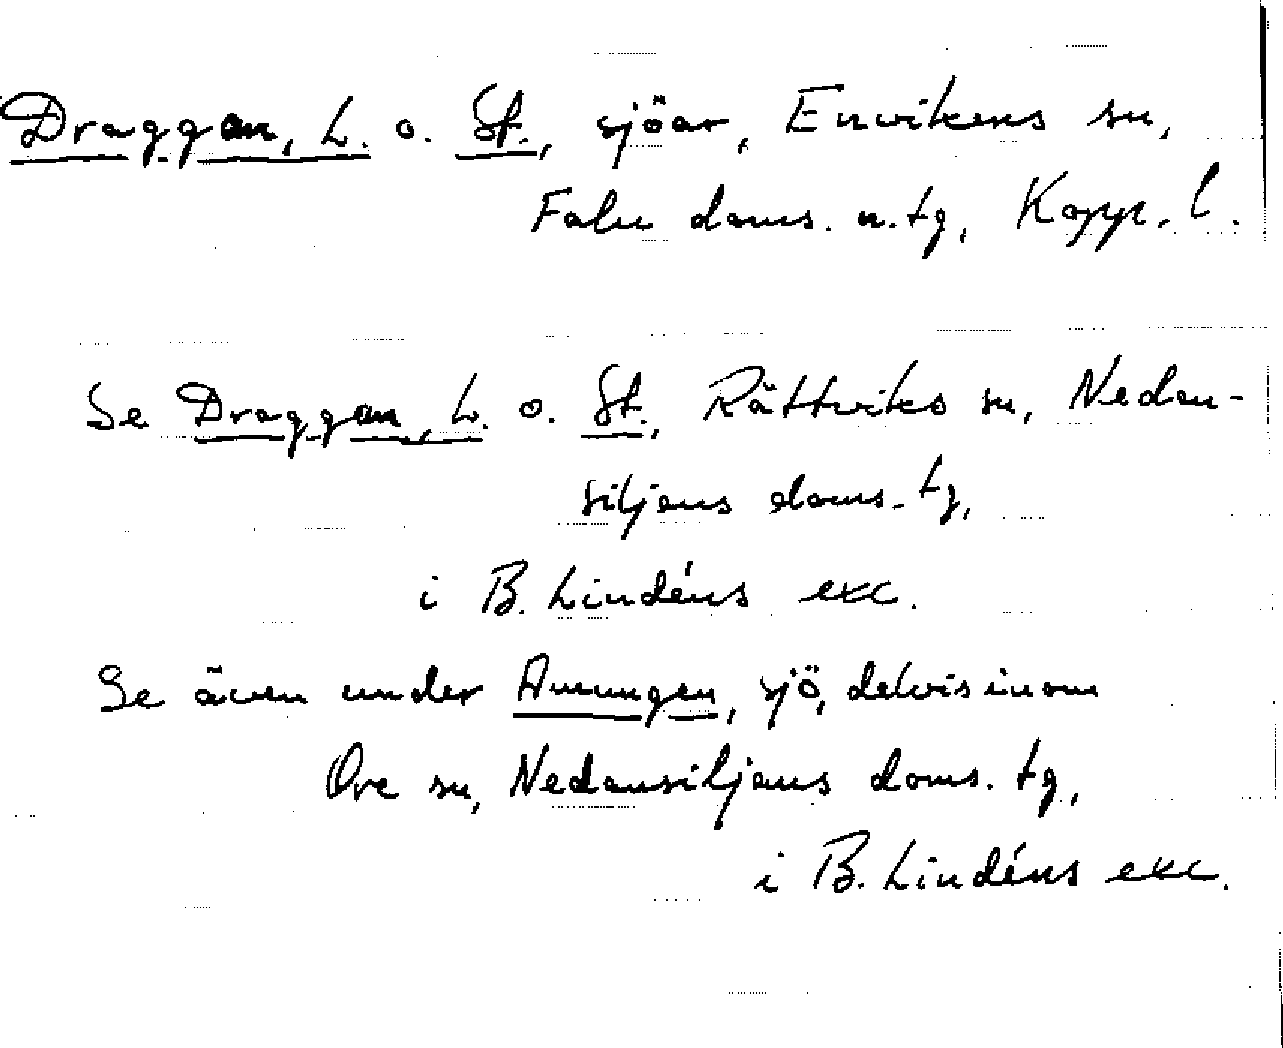 Draggan, L. o. St., sjöar, Envikens sn,
Falu doms. n. tg, Kopp. l.
Se Draggan, L. o. St., Rättviks sn, Nedan-
siljans doms. tg,
i B. Lindéns exc.
Se även under Amungen, sjö, delvis inom
Ore sn, Nedansiljans doms. tg,
i B. Lindéns exc.